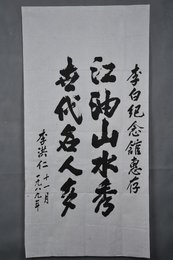 李白纪念馆惠存
江油山水秀
世代名人多
李洪仁
十一月
一九八九年